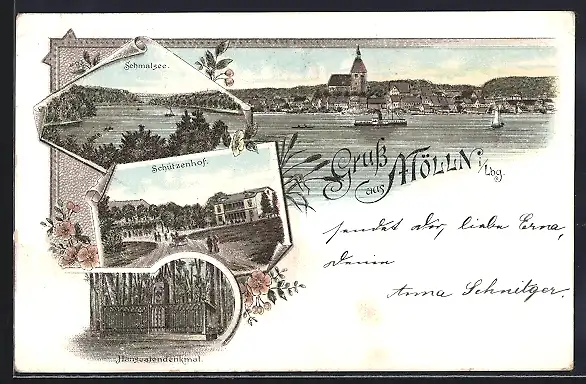 Schmalsee.
Schützenhof.
Gruß aus MÖLLN i/Lbg.
sendet dir, liebe Erna,
Deine
Anna Schnitger.
Hanseatendenkmal.